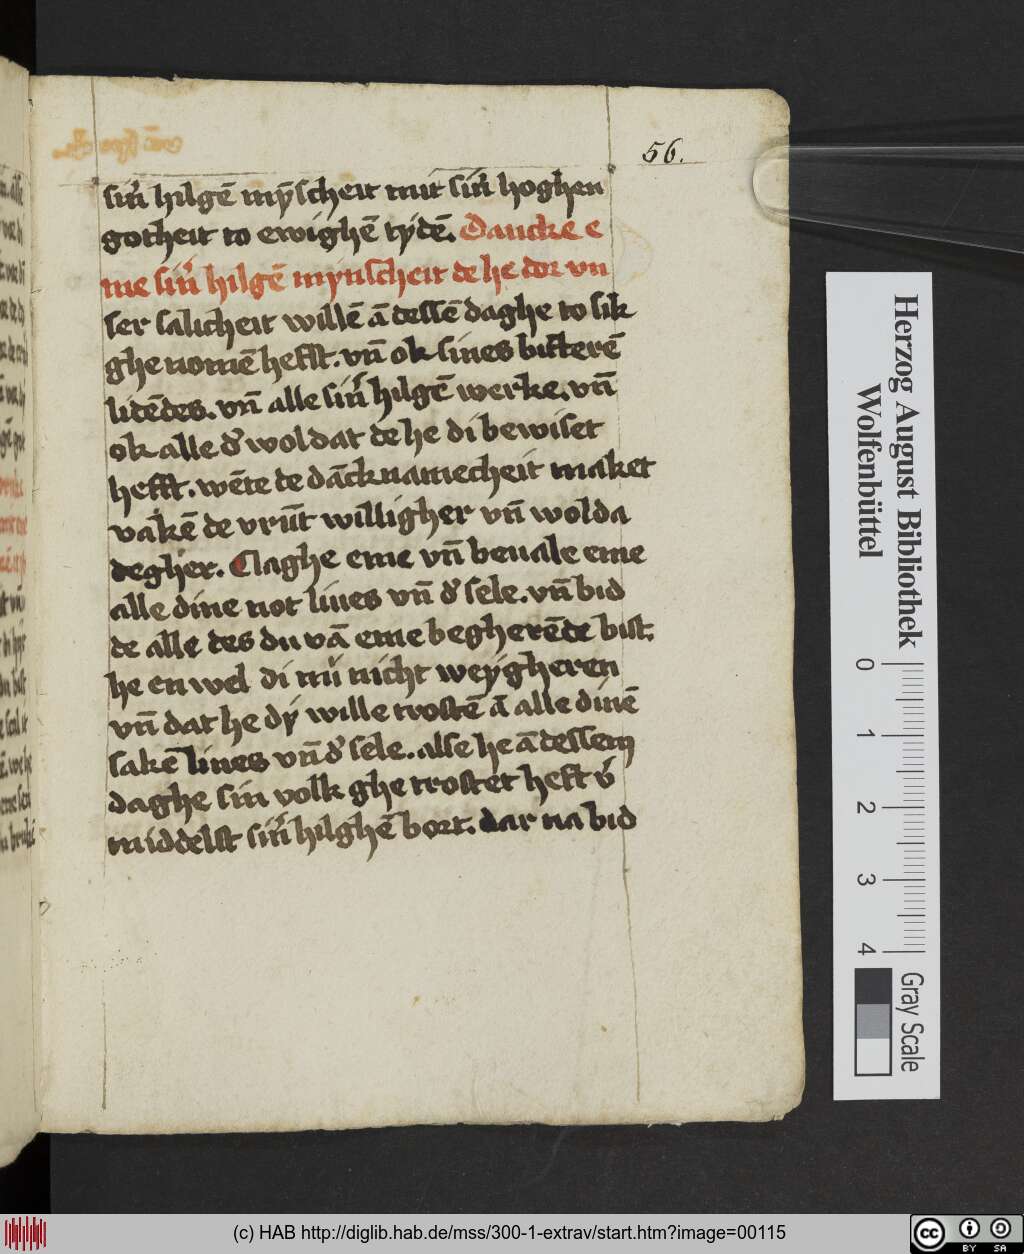 56.
sin̄ hilgē mȳscheit mit sin̄ hoghen
gotheit to ewighē tydē. Dancke e
me sin̄ hilgē mynscheit de he dor vn
ser salicheit willē ā dessē daghe to sik
ghe nomē hefft. vn̄ ok sines bitterē
lidēdes. vn̄ alle sin̄ hilgē werke. vn̄
ok alle d' woldat de he di bewiset
hefft. wēte de dācknamecheit maket
vakē de vrūt willigher vn̄ wolda
degher. Claghe eme vn̄ beuale eme
alle dine not liues vn̄ d' sele. vn̄ bid
de alle des du vā eme begherēde bist.
he en wel di nu nicht weygheren
vn̄ dat he dy wille trostē ā alle dinē
sakē liues vn̄ d' sele. alse he ā dessem
daghe sin volk ghe trostet heft v'
middelst sin̄ hilghē bort. dar na bid
Herzog August Bibliothek
Wolfenbüttel
0 1 2 3 4
Gray Scale
(c) HAB http://diglib.hab.de/mss/300-1-extrav/start.htm?image=00115
cc BY SA